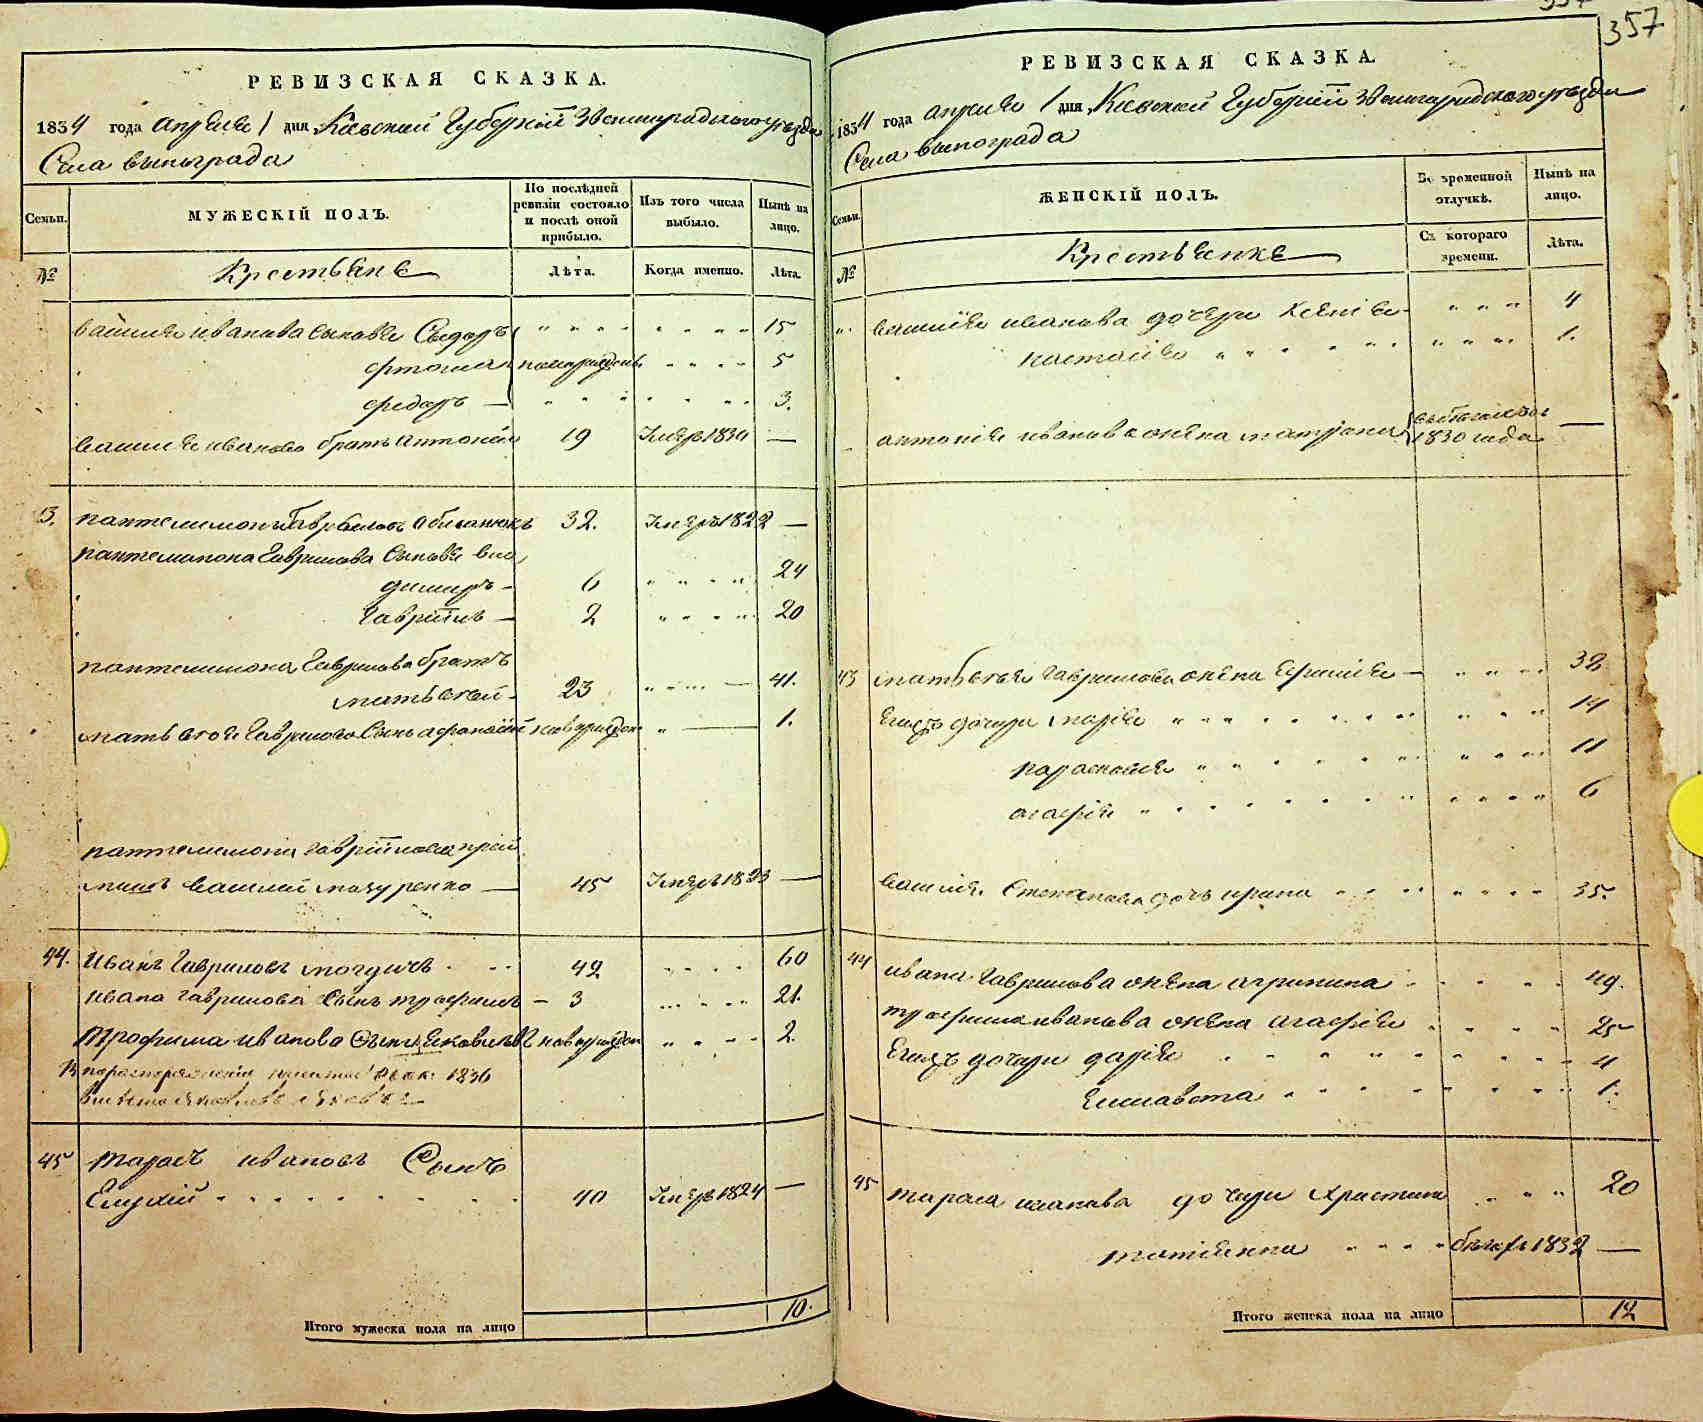 357
РЕВИЗСКАЯ СКАЗКА.
1834 года апреля 1 дня Киевской Губернии Звенигородского уезда
Села винограда
Семьи.
МУЖЕСКІЙ ПОЛЪ.
По послѣдней ревизіи состояло и послѣ оной прибыло.
Изъ того числа выбыло.
Нынѣ на лицо.
№
Крестьяне
Лѣта.
Когда именно.
Лѣта.
василя иванова сыновя Сидоръ 15
новорожден 5
федоръ — 3.
василя иванова братъ антоній 19 Умеръ 1830 —
3. пантелимонъ Гавриловъ 32. Умеръ 1822 —
пантелимона Гаврилова сыновя вла
димиръ - 6 24
Гавріилъ — 2 20
пантелимона Гаврилова братъ
матьвей - 23 — 41.
матьвея Гаврилова Сынъ афанасій новорожден — 1.
пантелимона Гавріилова прій
мишъ василий мазуренко — 45 Умеръ 1823 —
44. Иванъ Гавриловъ 42 60
ивана гаврилова сынъ трофимъ – 3 21.
Трофима иванова Сынъ новорожден 2.
1836
45 тарасъ ивановъ Сынъ
40 Умеръ 1824 —
Итого мужеска пола на лицо 10.
РЕВИЗСКАЯ СКАЗКА.
1834 года апреля 1 дня Киевской Губернии Звенигородского уезда
Села винограда
Семьи.
ЖЕНСКІЙ ПОЛЪ.
Во временной отлучкѣ.
Нынѣ на лицо.
№
Крестьянке
Съ котораго времени.
Лѣта.
василия иванова дочери Ксения 4
настасия 1.
антония иванова жена матрона 1830 года —
43 матьвея гаврилова жена 32
Егожъ дочери мария 14
параскавия 11
агафия 6
василя Степанова дочь ирина 35.
44 ивана гаврилова жена агрипина 49.
трофима иванова жена агафия 25
Егожъ дочери дария 4
Елисавета 1.
45 тараса иванова дочери христина 20
татиянна 1832 —
Итого женска пола на лицо 12